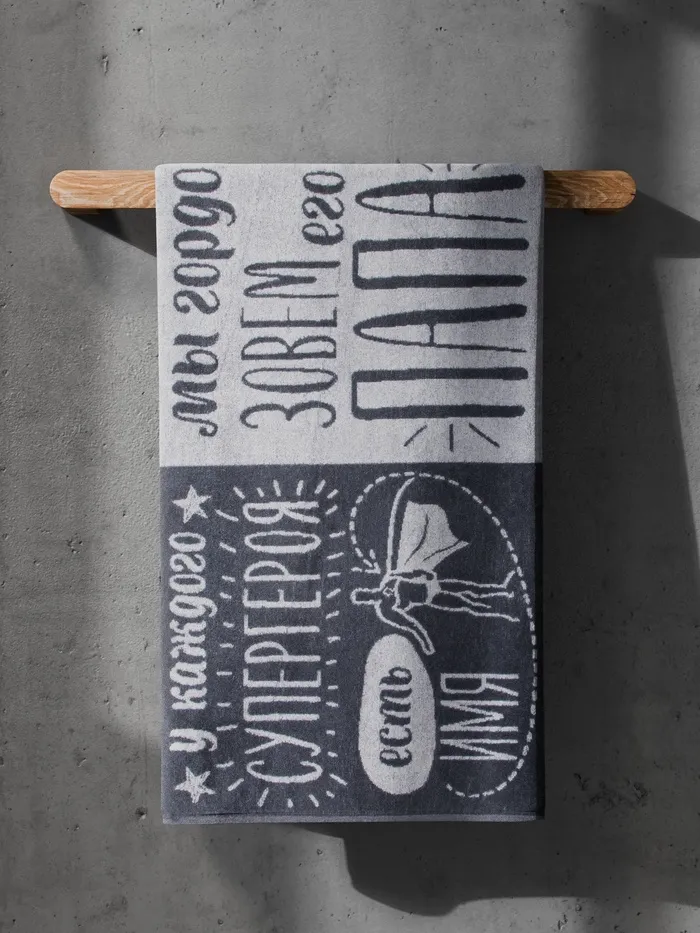 у каждого
СУПЕРГЕРОЯ
есть
ИМЯ
мы гордо
ЗОВЕМ его
ПАПА